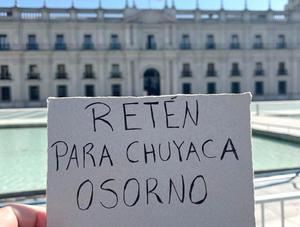 RETÉN
PARA CHUYACA
OSORNO